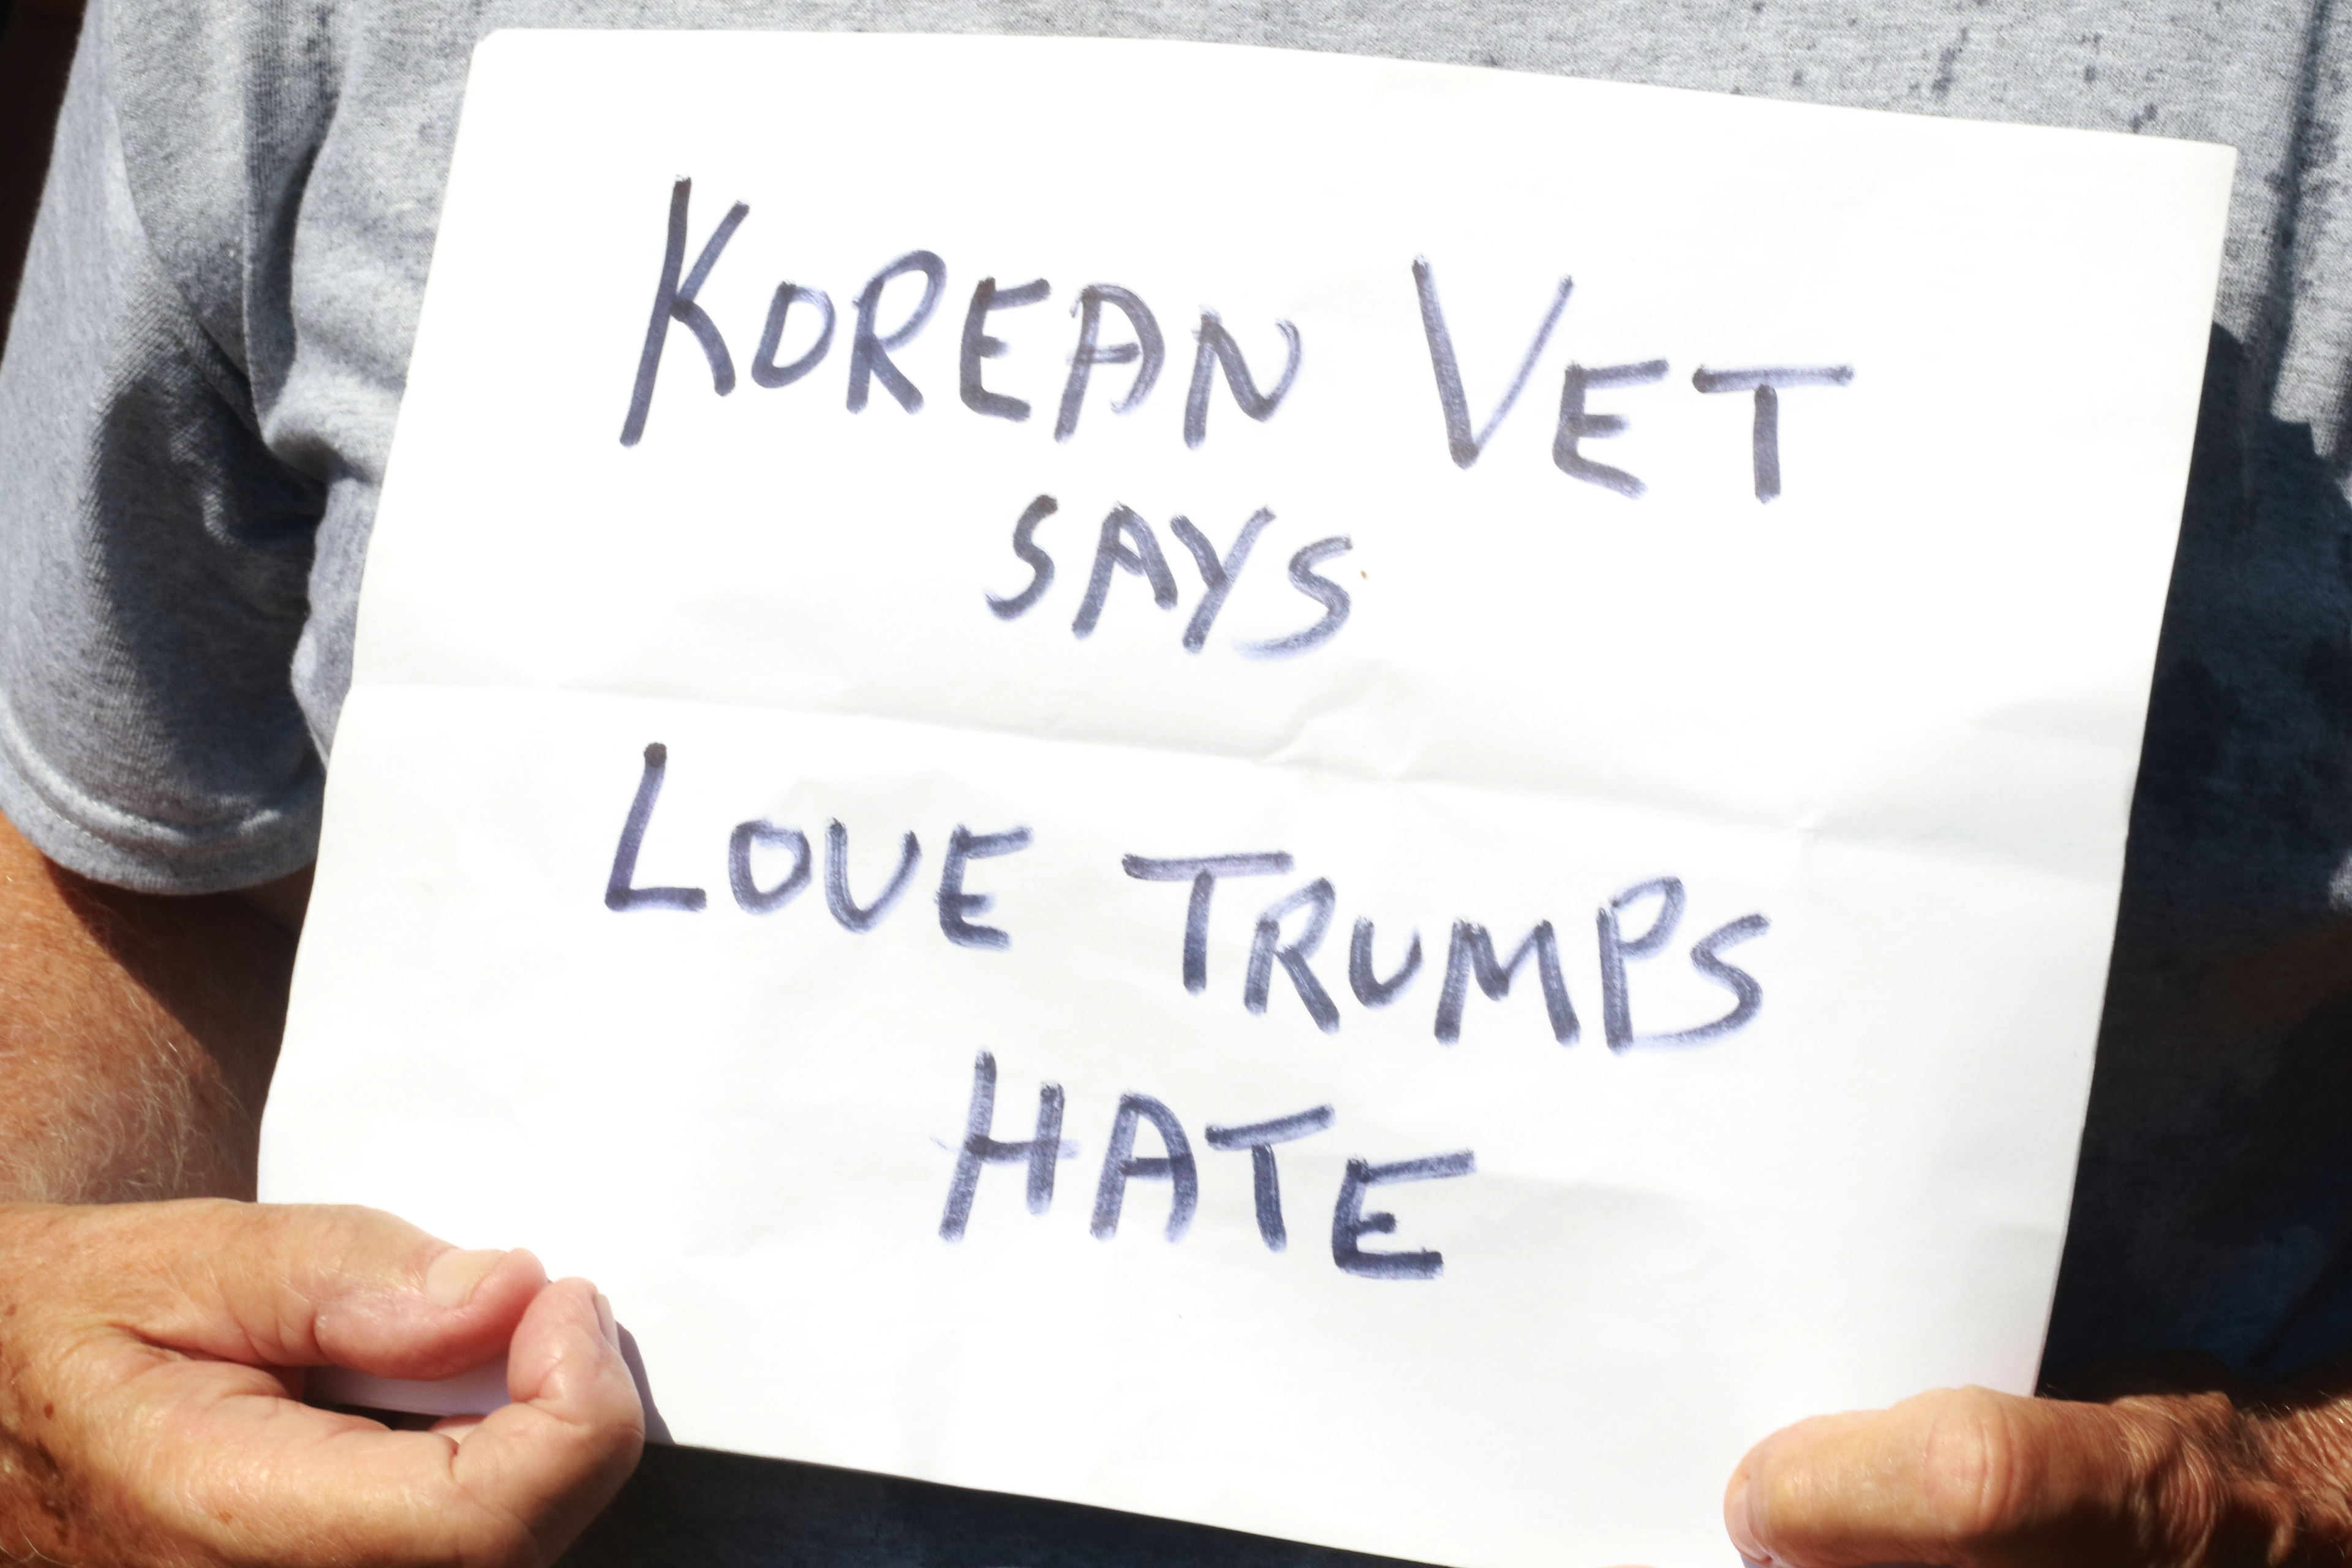 KOREAN VET
SAYS
LOVE TRUMPS
HATE